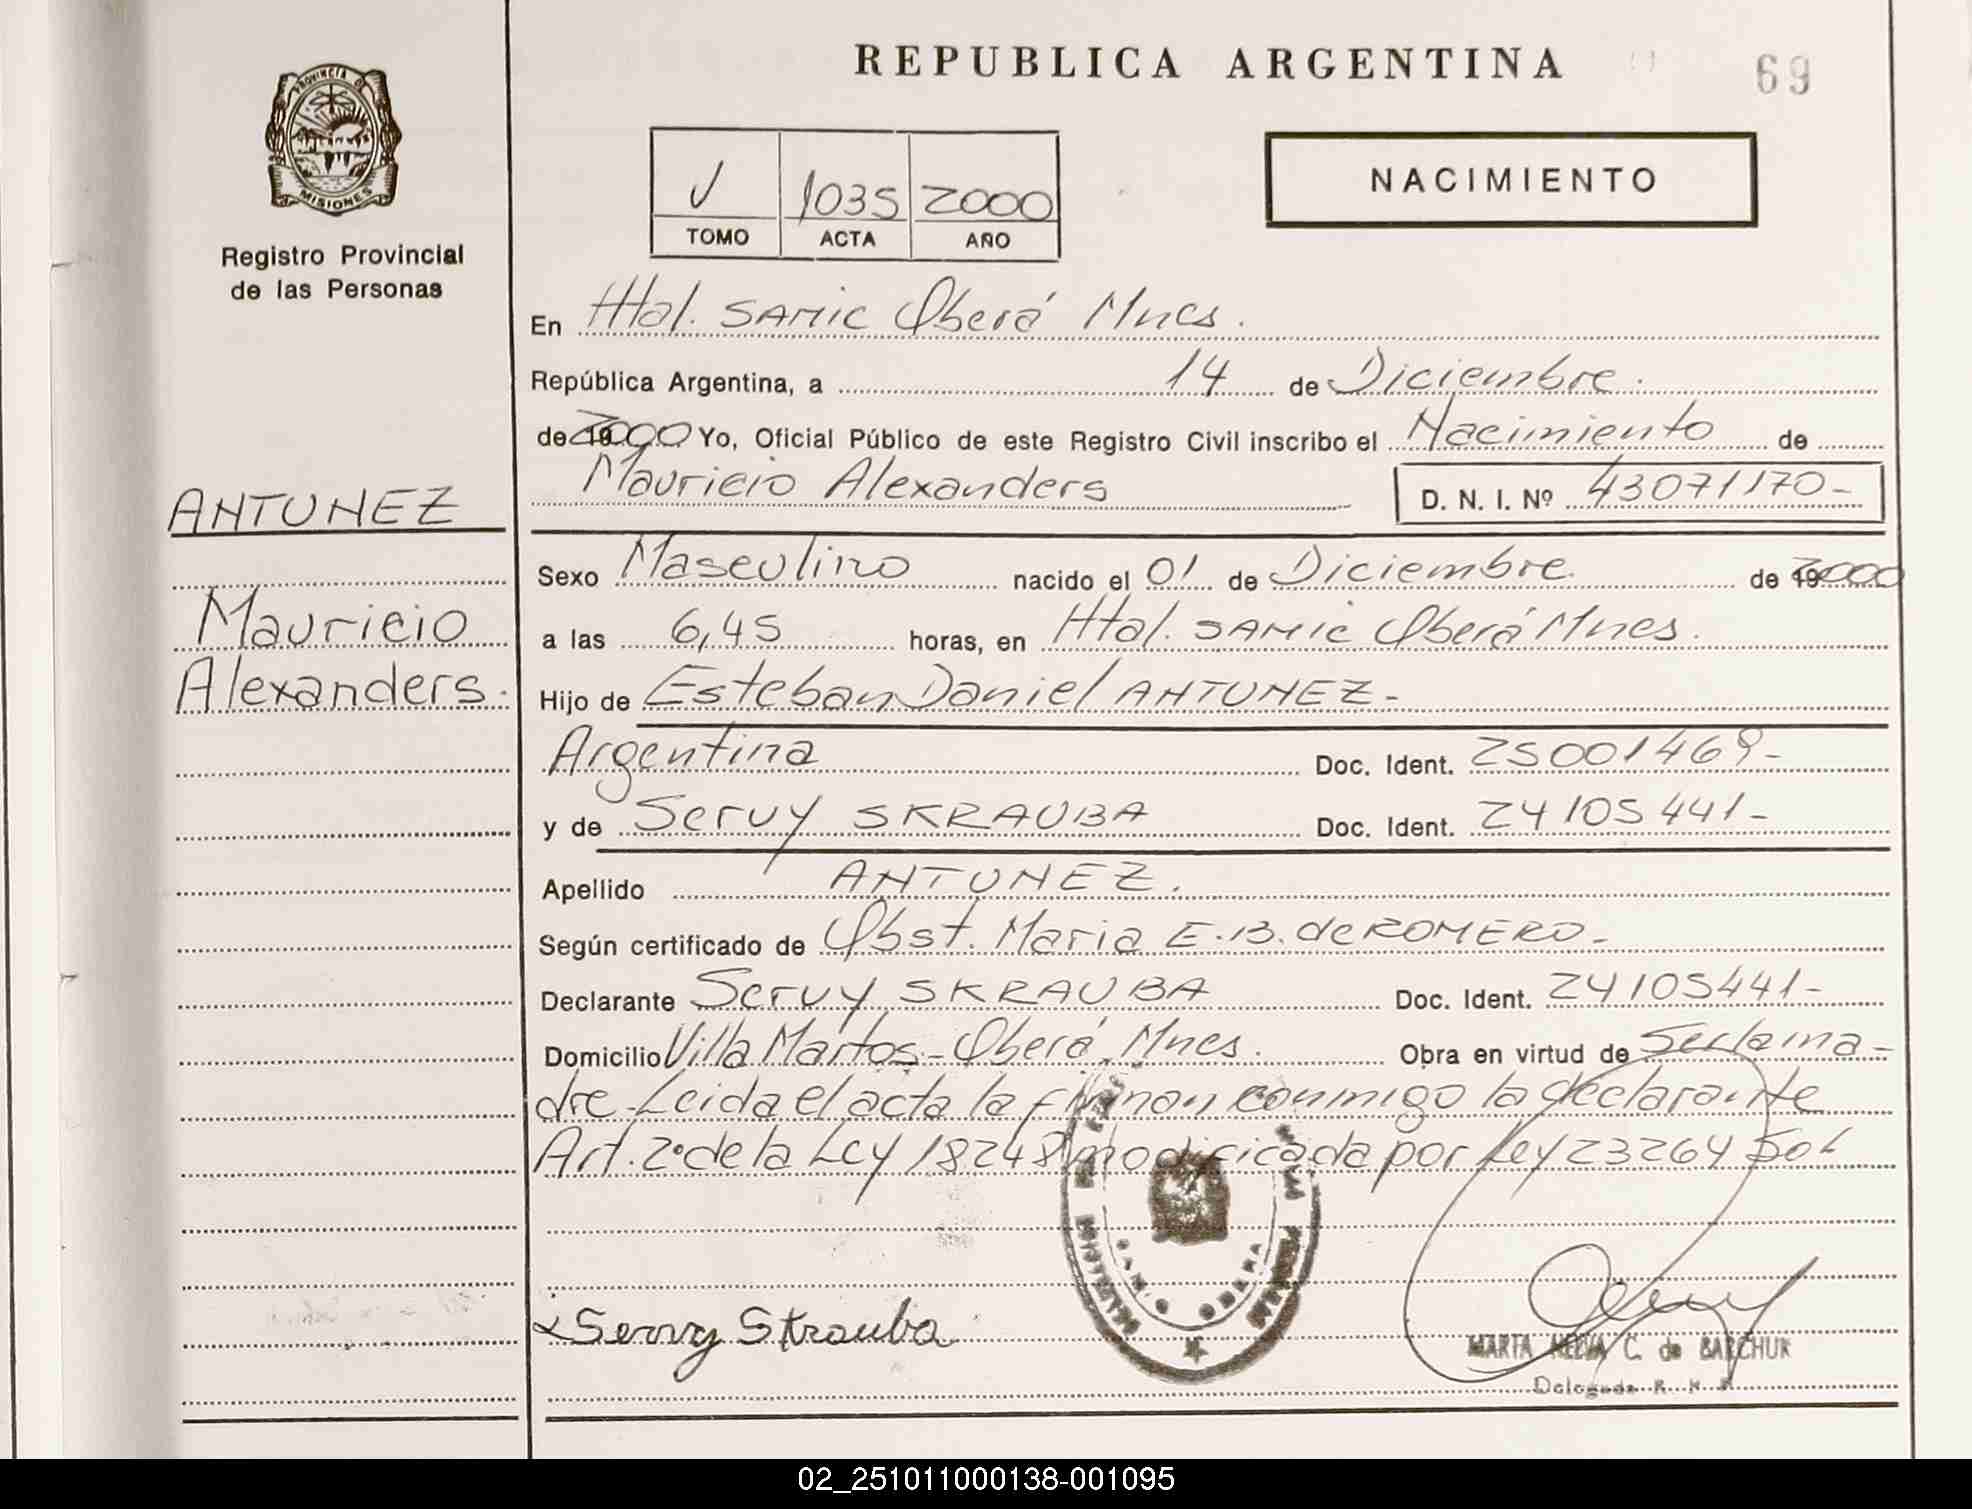 REPUBLICA ARGENTINA
69
PROVINCIA DE
MISIONES
Registro Provincial
de las Personas
V 1035 2000
TOMO ACTA AÑO
NACIMIENTO
En Htal. SAMIC Oberá Mnes.
República Argentina, a 14 de Diciembre.
de 2000 Yo, Oficial Público de este Registro Civil inscribo el Nacimiento de
Mauricio Alexanders D. N. I. Nº 43071170-
ANTUNEZ
Mauricio
Alexanders.
Sexo Masculino nacido el 01 de Diciembre. de 2000
a las 6,45 horas, en Htal. SAMIC Oberá Mnes.
Hijo de Esteban Daniel ANTUNEZ-
Argentina Doc. Ident. 25001469-
y de Servy SKRAUBA Doc. Ident. 24105441-
Apellido ANTUNEZ.
Según certificado de Obst. Maria E.B. de ROMERO-
Declarante Servy SKRAUBA Doc. Ident. 24105441-
Domicilio Villa Martos-Oberá, Mnes. Obra en virtud de Ser la ma-
dre-Leida el acta la firman conmigo la declarante
Art. 2º de la Ley 18248 modificada por Ley 23264
Servy Skrauba
OBERA
MARTA C. de BARCHUK
Delegada R.
02_251011000138-001095